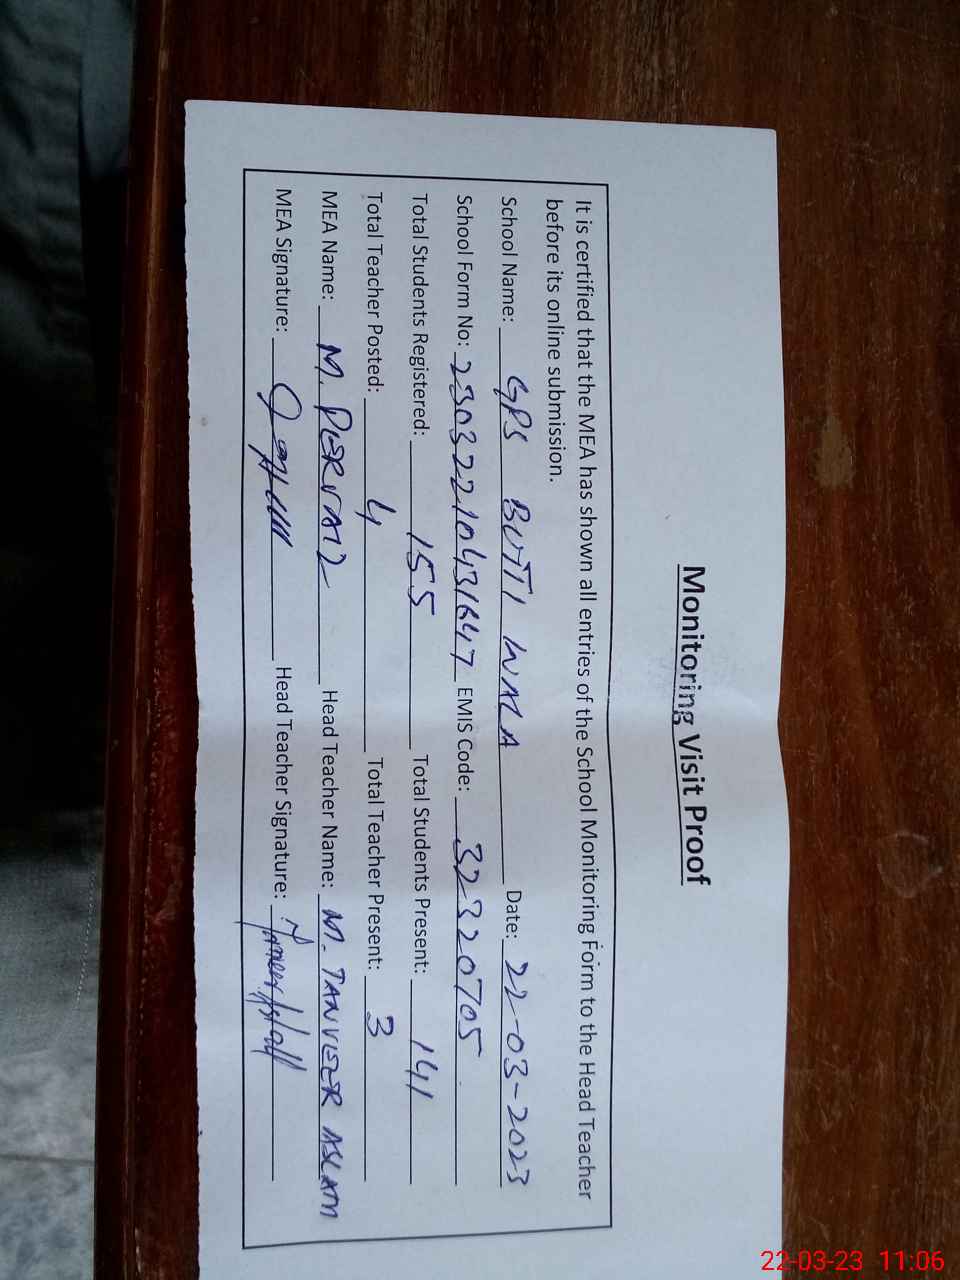 Monitoring Visit Proof
It is certified that the MEA has shown all entries of the School Monitoring Form to the Head Teacher
before its online submission.
School Name: GPS BUTTI WALA Date: 22-03-2023
School Form No: 23032210431647 EMIS Code: 32320705
Total Students Registered: 155 Total Students Present: 141
Total Teacher Posted: 4 Total Teacher Present: 3
MEA Name: M. PERVAIZ Head Teacher Name: M. TANVEER ASLAM
MEA Signature: Head Teacher Signature:
22-03-23 11:06